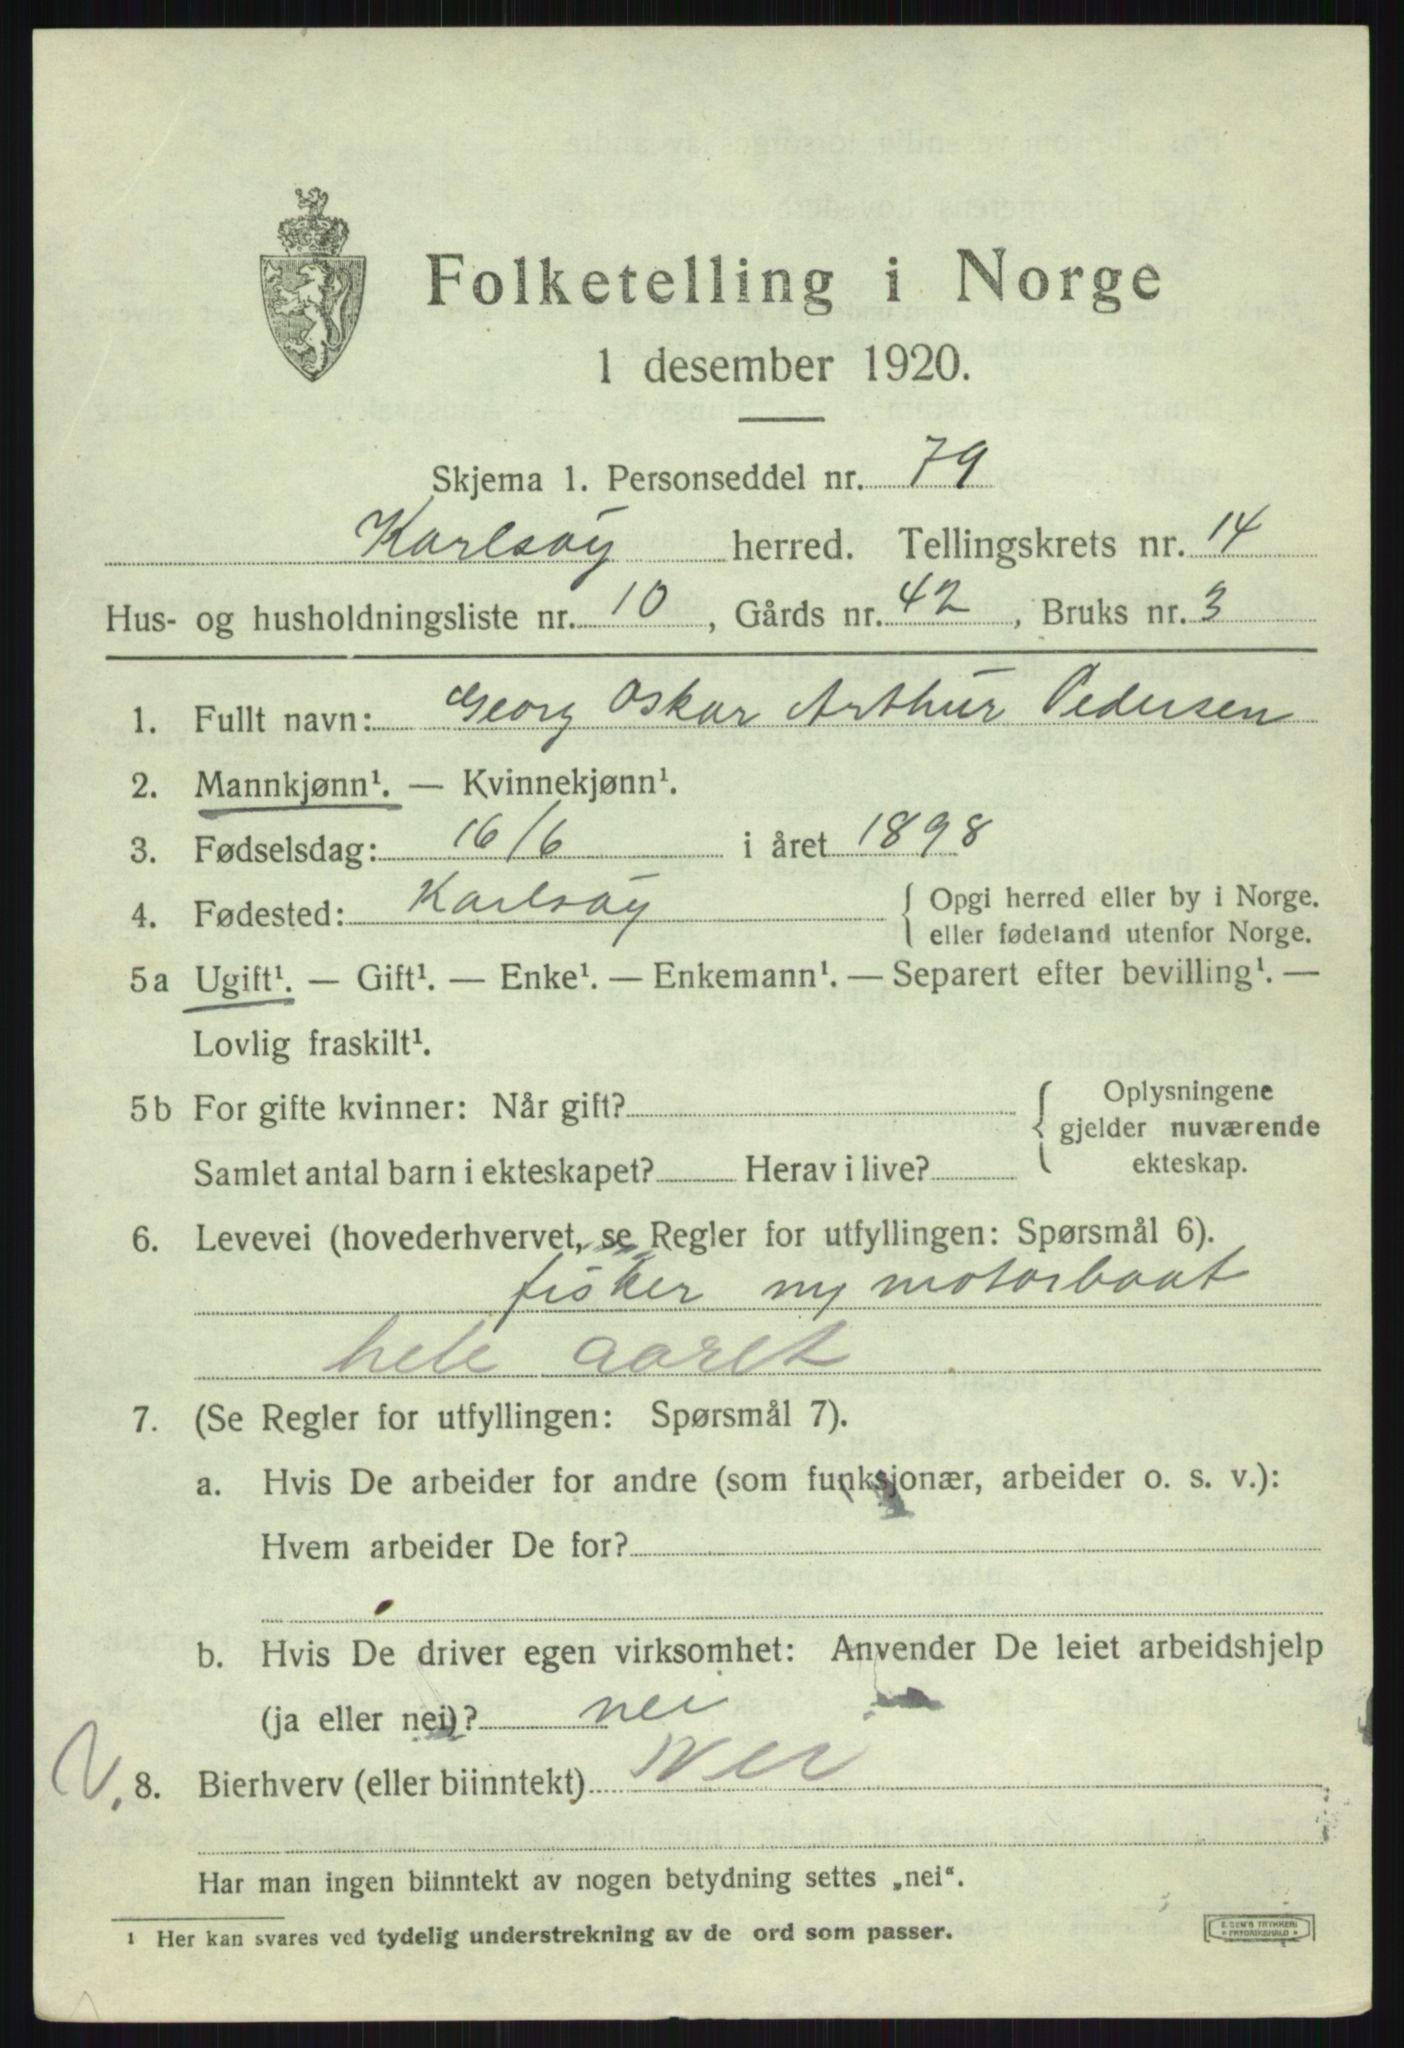 Folketelling i Norge
1 desember 1920.
Skjema 1. Personseddel nr. 79
Karlsøy herred. Tellingskrets nr. 14
Hus- og husholdningsliste nr. 10, Gårds nr. 42, Bruks nr. 3
1. Fullt navn: Georg Oskar Arthur Pedersen
2. Mannkjønn¹. — Kvinnekjønn¹.
3. Fødselsdag: 16/6 i året 1898
4. Fødested: Karlsøy { Opgi herred eller by i Norge.
eller fødeland utenfor Norge.
5a Ugift¹. — Gift¹. — Enke¹. — Enkemann¹. — Separert efter bevilling¹. —
Lovlig fraskilt¹.
5b For gifte kvinner: Når gift? { Oplysningene
gjelder nuværende
ekteskap.
Samlet antal barn i ekteskapet? Herav i live?
6. Levevei (hovederhvervet, se Regler for utfyllingen: Spørsmål 6).
fisker ny motorbaat
hele aaret
7. (Se Regler for utfyllingen: Spørsmål 7).
a. Hvis De arbeider for andre (som funksjonær, arbeider o. s. v.):
Hvem arbeider De for?
b. Hvis De driver egen virksomhet: Anvender De leiet arbeidshjelp
(ja eller nei)? nei
8. Bierhverv (eller biinntekt) Nei
Har man ingen biinntekt av nogen betydning settes „nei“.
¹ Her kan svares ved tydelig understrekning av de ord som passer.